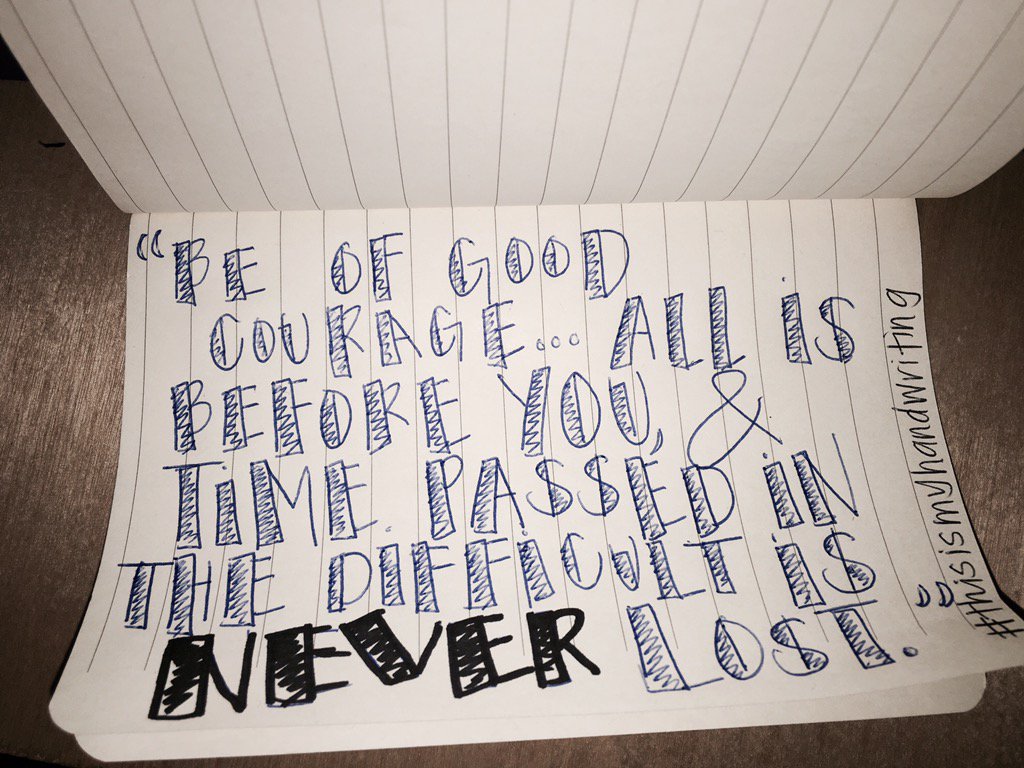 “BE OF GOOD
COURAGE... ALL iS
BEFORE YOU, &
TiME PASSED iN
THE DiFFiCULT iS
NEVER LOST.”
#thisismyhandwriting